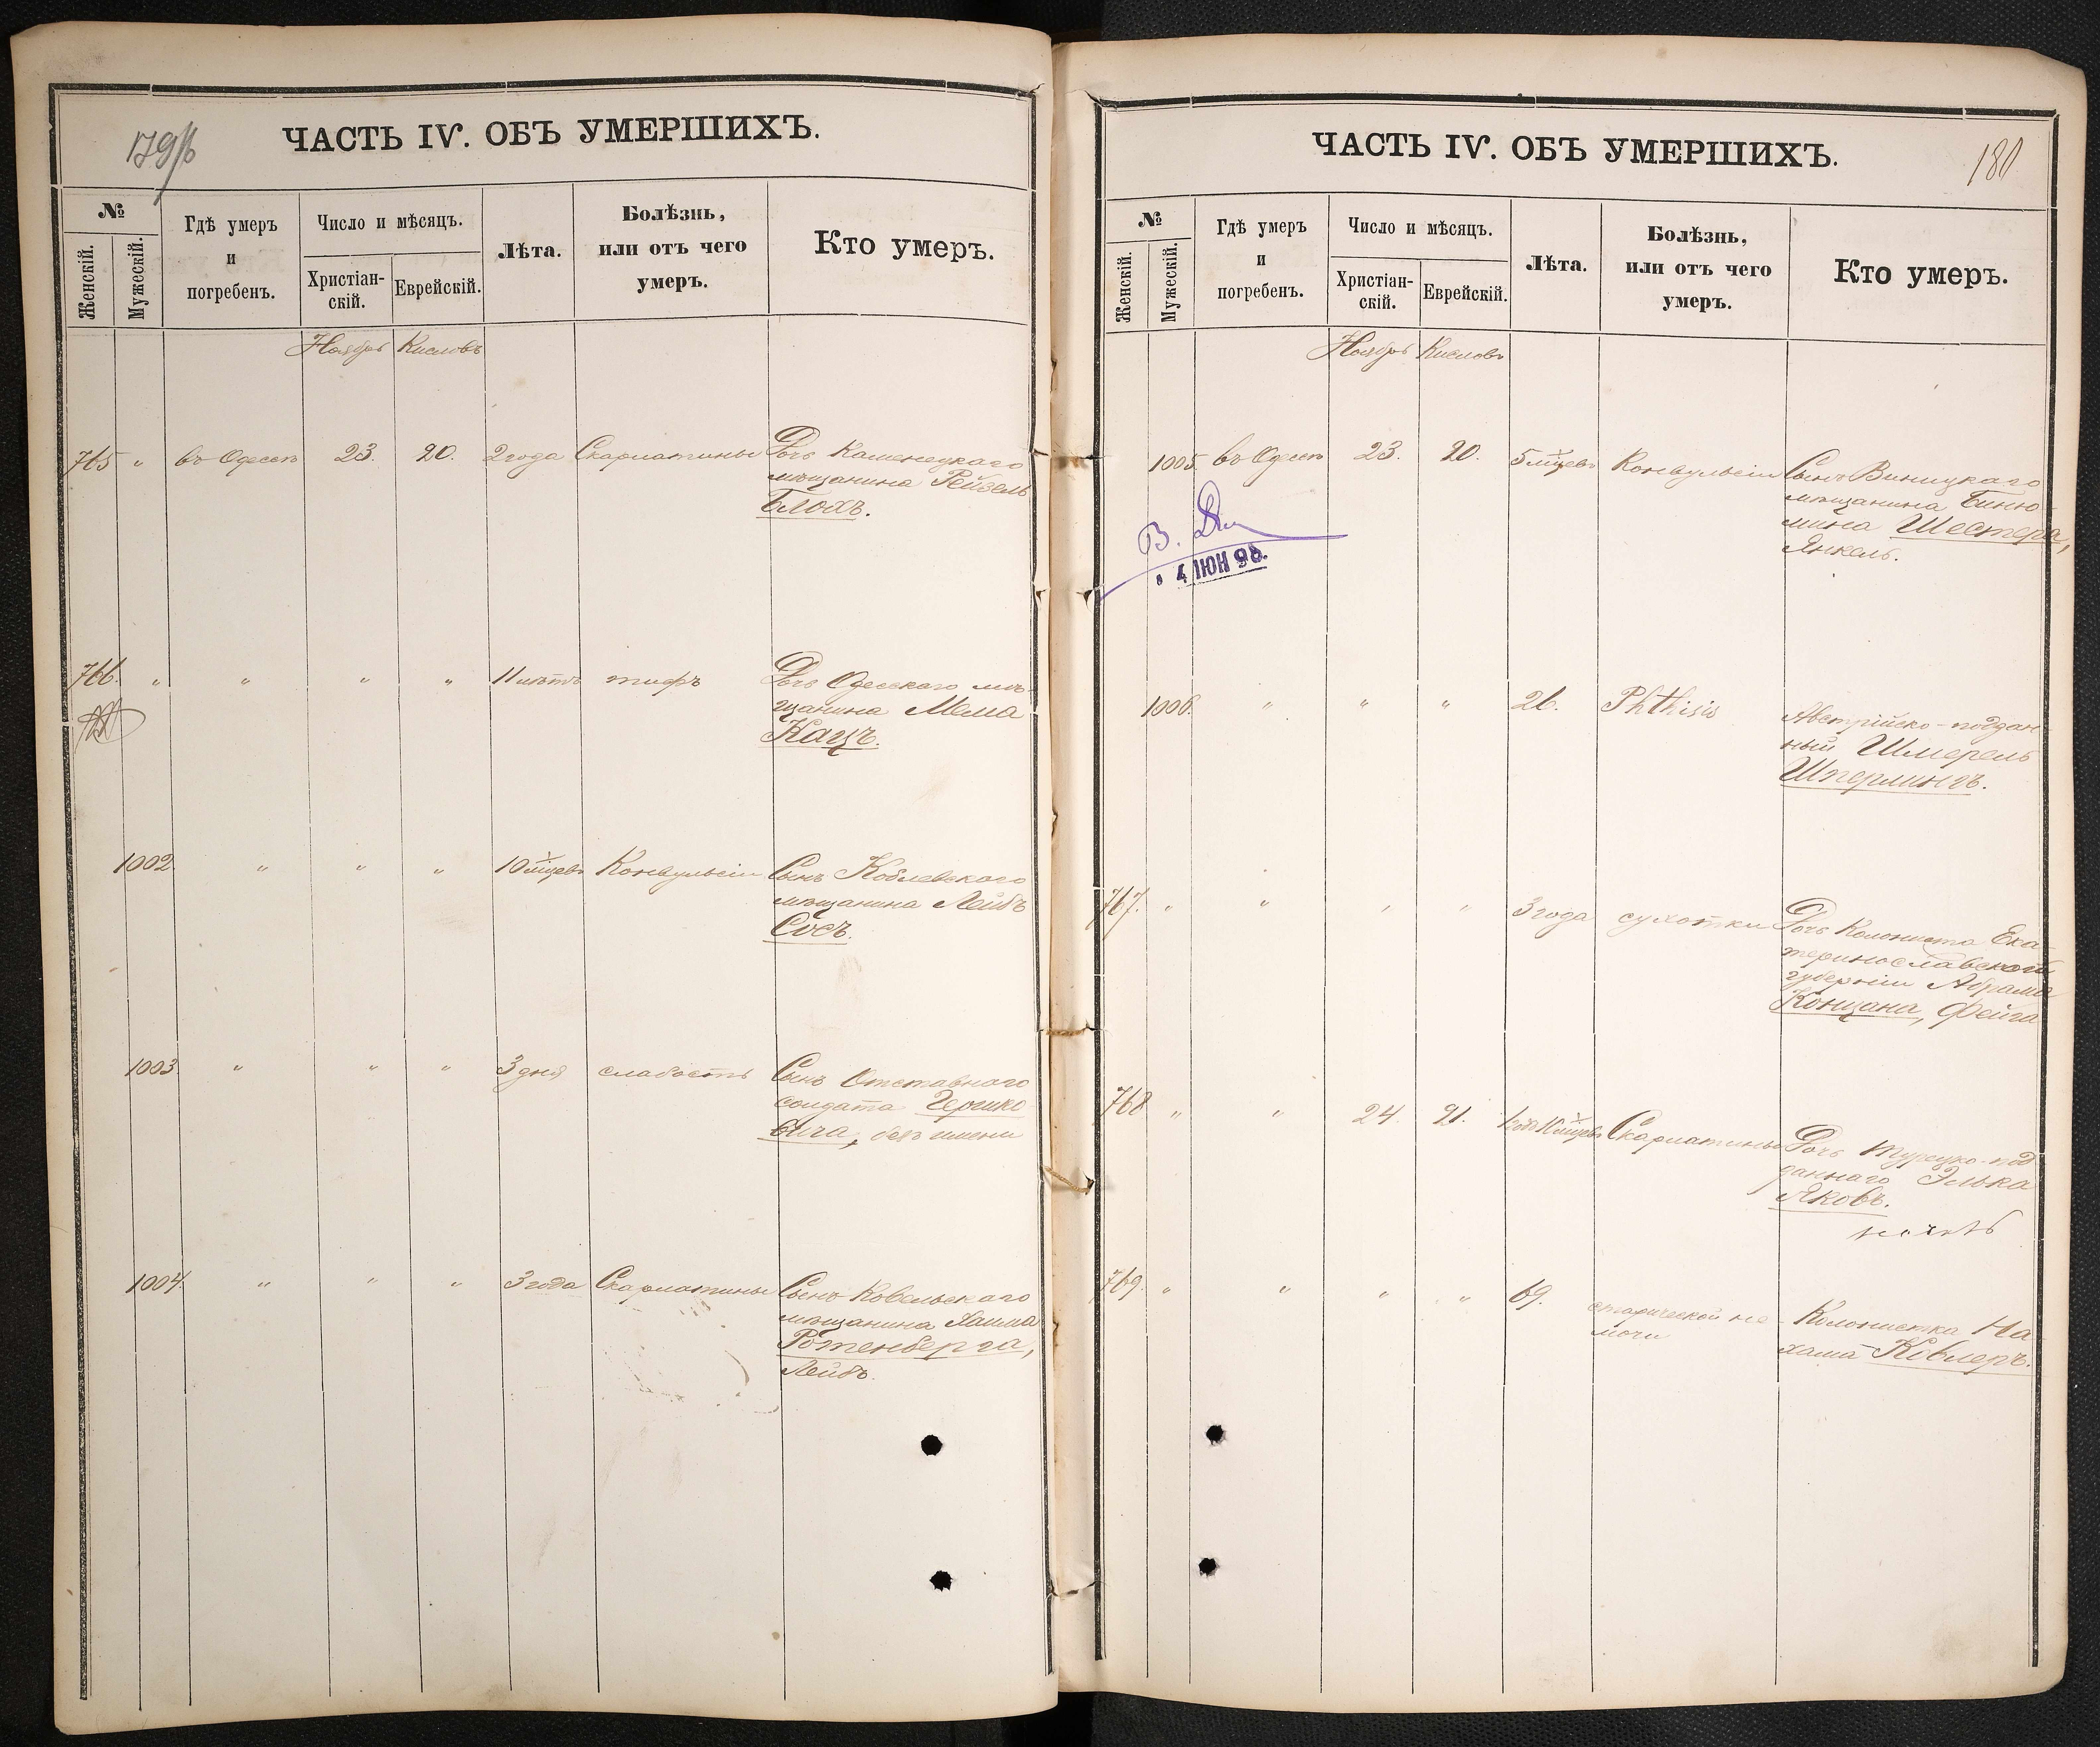 179/б
ЧАСТЬ IV. ОБЪ УМЕРШИХЪ.
№
Женскій.
Мужескій.
Гдѣ умеръ
и
погребенъ.
Число и мѣсяцъ.
Христіан-
скій.
Еврейскій.
Лѣта.
Болѣзнь,
или отъ чего
умеръ.
Кто умеръ.
Ноябрь Кислевъ
765 " въ Одессѣ 23. 20. 2 года Скарлатины Дочь Каменецкаго
мѣщанина Рейзель
Блохъ.
766. " " " " 11 лѣтъ тифъ Дочь Одесскаго мѣ-
щанина Мема
Кацъ.
1002. " " " 10 мѣсяцевъ Конвульсіи Сынъ Коблевскаго
мѣщанина Лейбъ
Сосъ.
1003. " " " 3 дня слабость Сынъ Отставнаго
солдата Гершко
вича, безъ имени
1004. " " " 3 года Скарлатины Сынъ Ковельскаго
мѣщанина Хаима
Ротенберга,
Лейбъ.
ЧАСТЬ IV. ОБЪ УМЕРШИХЪ.
180
№
Женскій.
Мужескій.
Гдѣ умеръ
и
погребенъ.
Число и мѣсяцъ.
Христіан-
скій.
Еврейскій.
Лѣта.
Болѣзнь,
или отъ чего
умеръ.
Кто умеръ.
Ноябрь Кислевъ
1005. въ Одессѣ 23. 20. 5 мѣсяцевъ Конвульсіи Сынъ Виницкаго
мѣщанина Биню-
мина Шестера,
Янкель.
В.
4 ІЮН 98.
1006. " " " 26. Phthisis Австрійско-поддан
ный Шмерель
Шперлингъ.
767. " " " " 3 года сухотки Дочь Колониста Ека-
теринославской
губерніи Абрама
Концана, Фейга
768 " " 24. 21. 1 годъ 10 мѣсяцевъ Скарлатины Дочь Турецко-под
даннаго Элька
Яковъ.
769. " " " " 69. старческой не-
мочи Колонистка На-
хама Ковлеръ.